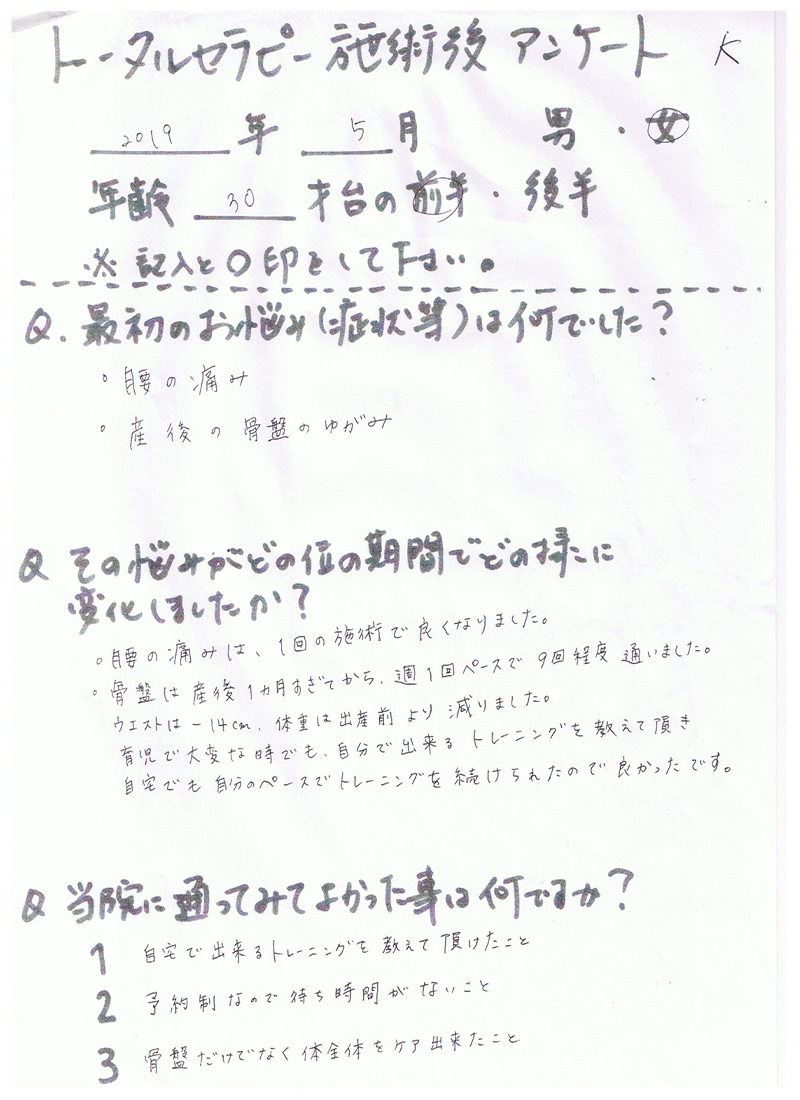 トータルセラピー施術後 アンケート K
2019 年 5 月 男・女
年齢 30 才台の 前半・後半
※ 記入と〇印をして下さい。
Q. 最初のお悩み(症状等)は何でした?
・腰の痛み
・産後の骨盤のゆがみ
Q その悩みがどの位の期間でどの様に
変化しましたか?
・腰の痛みは、1回の施術で良くなりました。
・骨盤は産後1ヵ月すぎてから、週1回ペースで9回程度通いました。
ウエストは-14cm、体重は出産前より減りました。
育児で大変な時でも、自分で出来るトレーニングを教えて頂き
自宅でも自分のペースでトレーニングを続けられたので良かったです。
Q 当院に通ってみてよかった事は何ですか?
1 自宅で出来るトレーニングを教えて頂けたこと
2 予約制なので待ち時間がないこと
3 骨盤だけでなく体全体をケア出来たこと